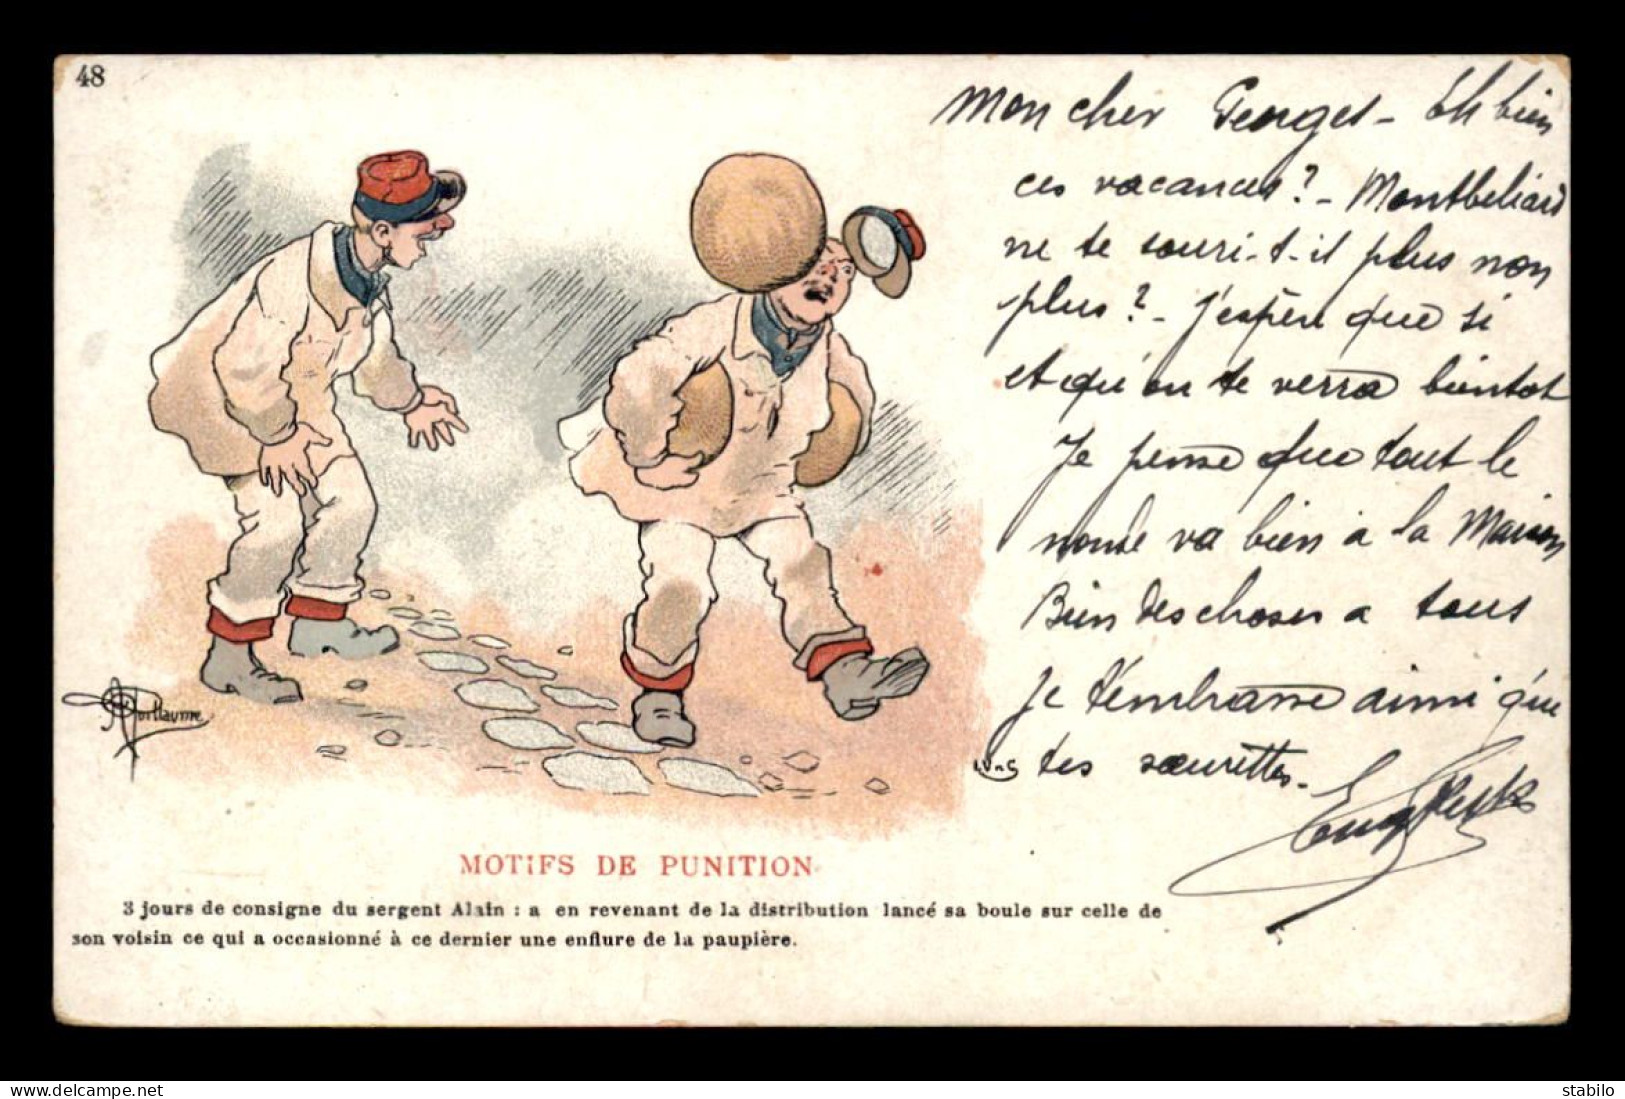 48
Mon cher Georges - Eh bien
ces vacances ? - Montbeliard
ne te souri-t-il plus non
plus ? - J'espère que si
et qu'on te verra bientot
Je pense que tout le
monde va bien a la Maison
Bien des choses a tous
Je t'embrasse ainsi que
tes sœurettes -
Guillaume
MOTIFS DE PUNITION
3 jours de consigne du sergent Alain : a en revenant de la distribution lancé sa boule sur celle de
son voisin ce qui a occasionné à ce dernier une enflure de la paupière.
https://www.delcampe.net
stabilo